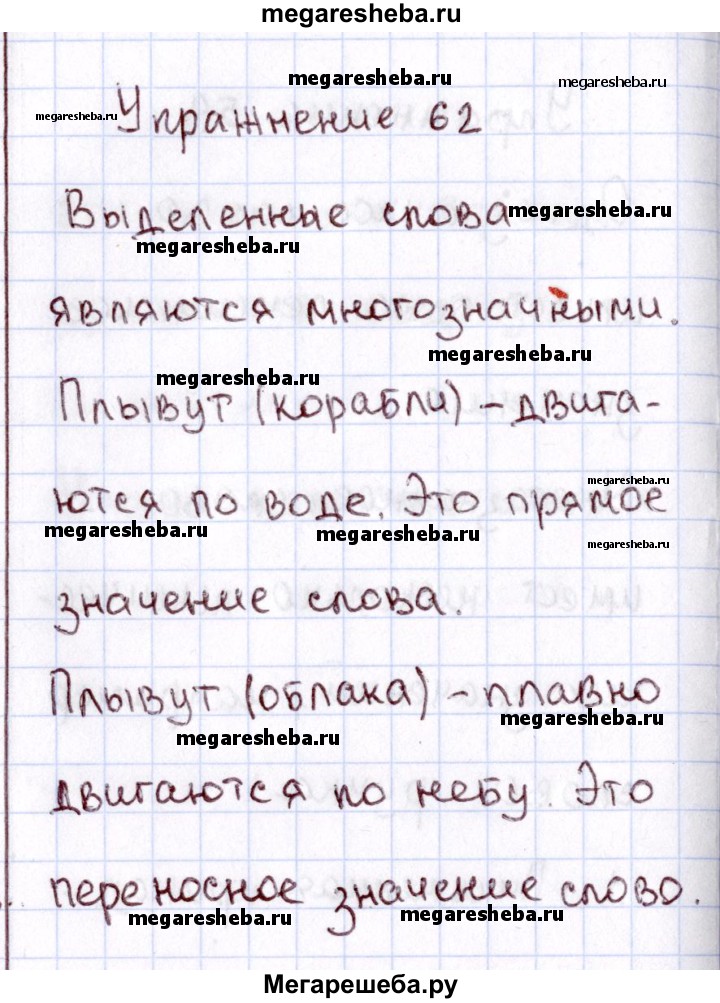 megaresheba.ru
megaresheba.ru
megaresheba.ru
megaresheba.ru
Упражнение 62
Выделенные слова
megaresheba.ru
megaresheba.ru
являются многозначными.
megaresheba.ru
megaresheba.ru
Плывут (корабли) - двига-
megaresheba.ru
ются по воде. Это прямое
megaresheba.ru
megaresheba.ru
megaresheba.ru
значение слова.
Плывут (облака) - плавно
megaresheba.ru
megaresheba.ru
двигаются по небу. Это
переносное значение слово.
megaresheba.ru
megaresheba.ru
Мегарешеба.ру